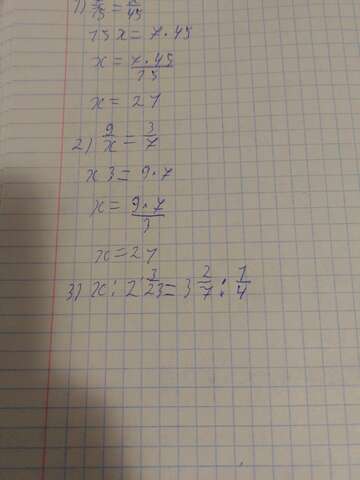 1) 7/15 = x/45
15x = 7·45
x = 7·45/15
x = 21
2) 9/x = 3/7
x3 = 9·7
x = 9·7/3
x = 21
3) x : 2 3/23 = 3 2/7 : 1/4